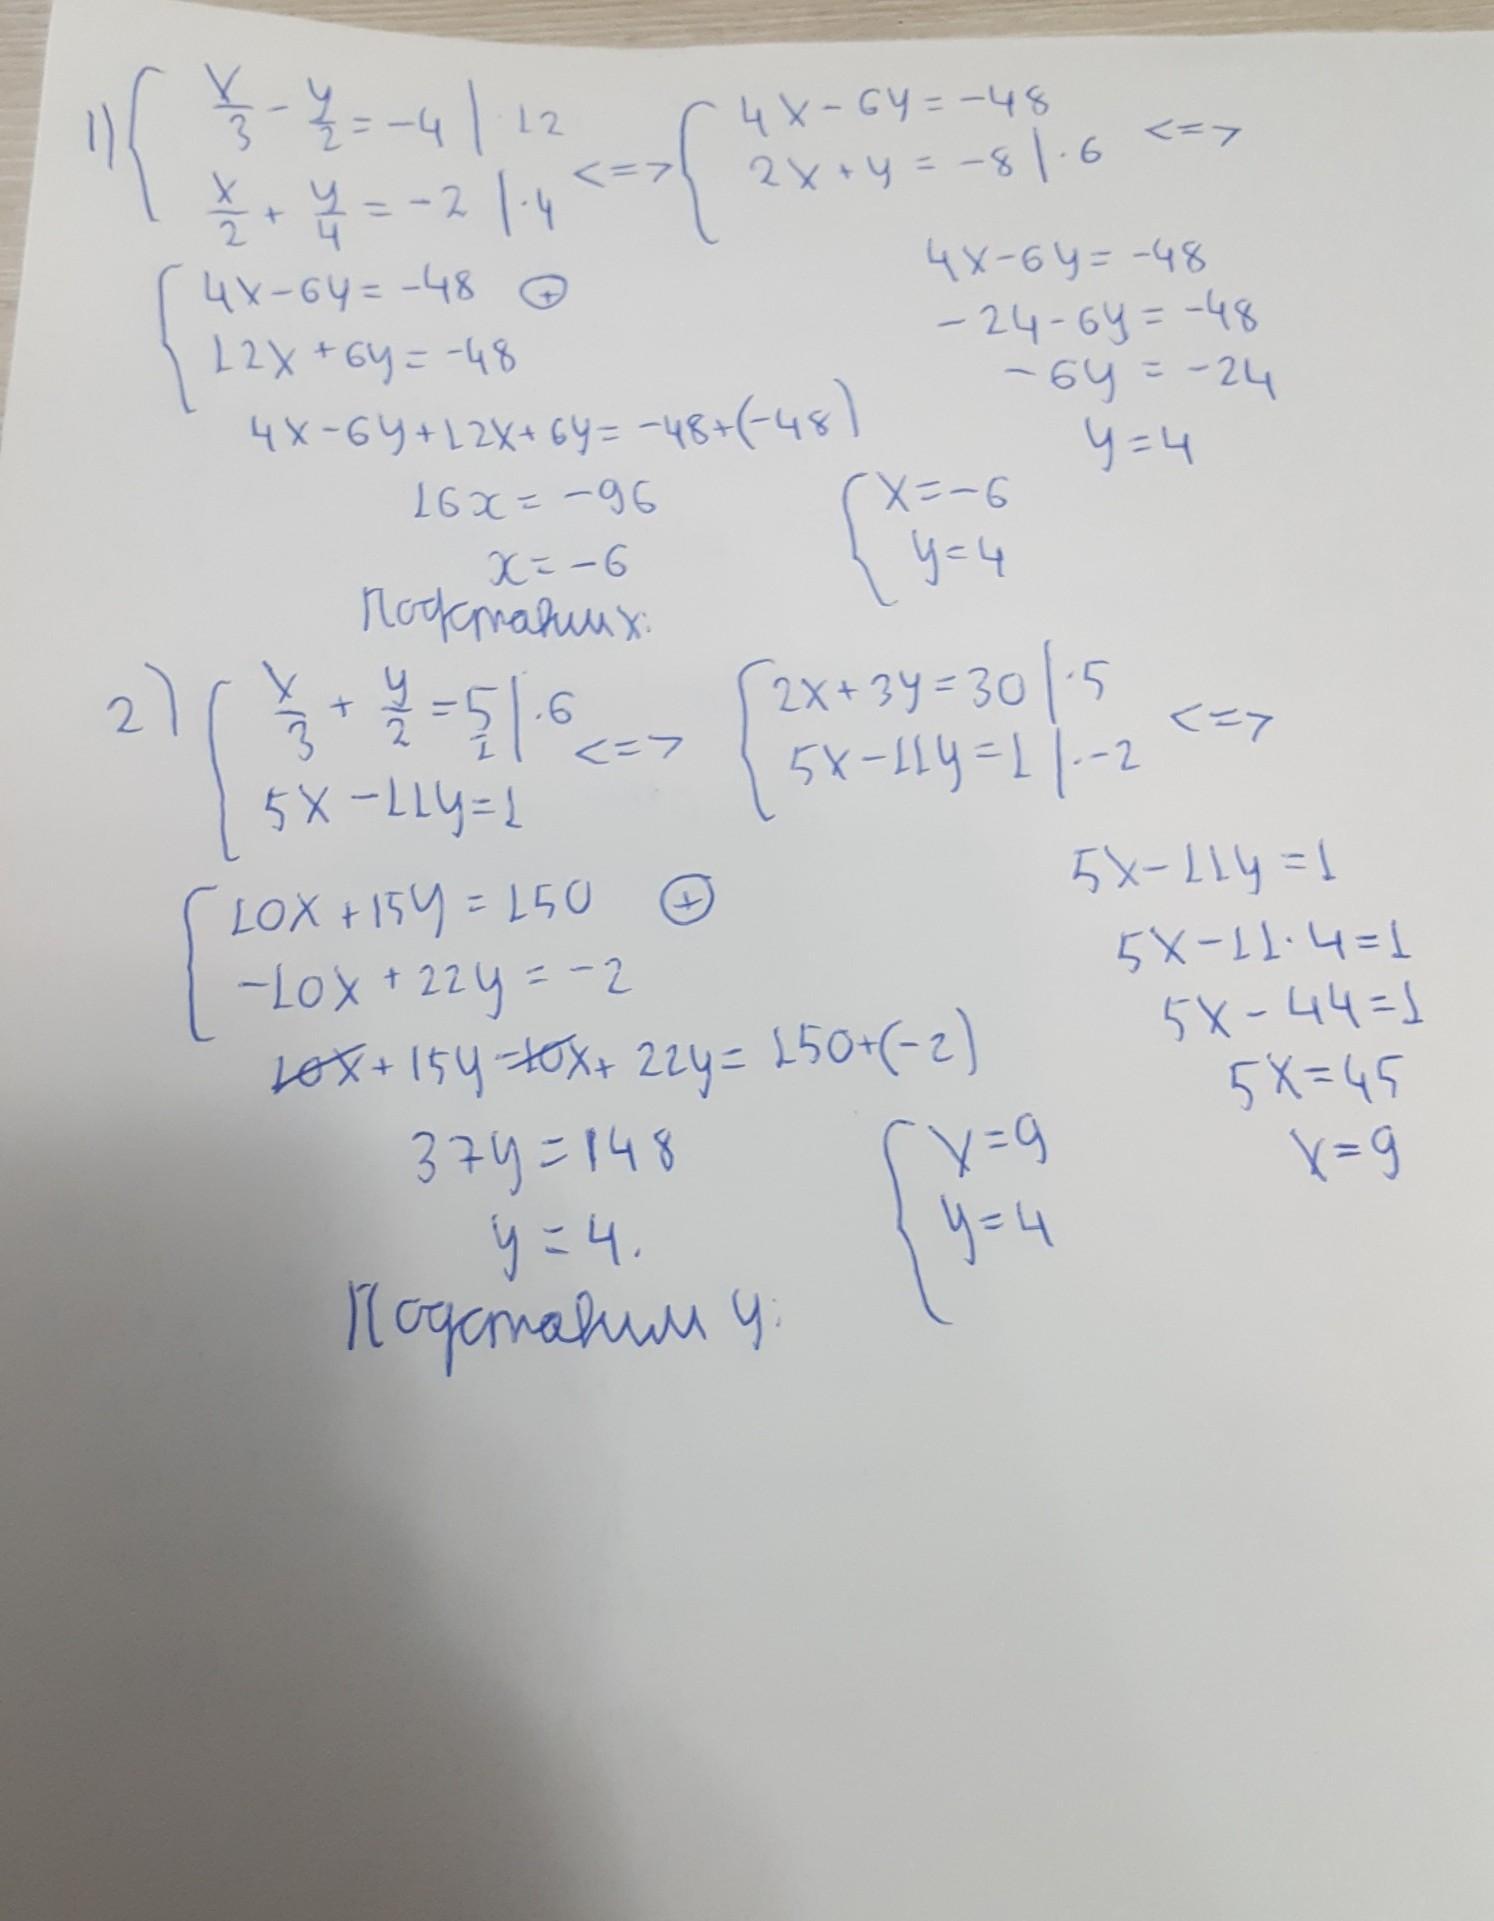 1) { x/3 - y/2 = -4 | · 12
x/2 + y/4 = -2 | · 4 <=> { 4x - 6y = -48
2x + y = -8 | · 6 <=>
{ 4x - 6y = -48 ⊕
12x + 6y = -48
4x - 6y + 12x + 6y = -48 + (-48)
16x = -96
x = -6
Подставим x:
4x - 6y = -48
-24 - 6y = -48
-6y = -24
y = 4
{ x = -6
y = 4
2) { x/3 + y/2 = 5/1 | · 6
5x - 11y = 1 <=> { 2x + 3y = 30 | · 5
5x - 11y = 1 | · -2 <=>
{ 10x + 15y = 150 ⊕
-10x + 22y = -2
10x + 15y - 10x + 22y = 150 + (-2)
37y = 148
y = 4.
Подставим y:
5x - 11y = 1
5x - 11 · 4 = 1
5x - 44 = 1
5x = 45
x = 9
{ x = 9
y = 4